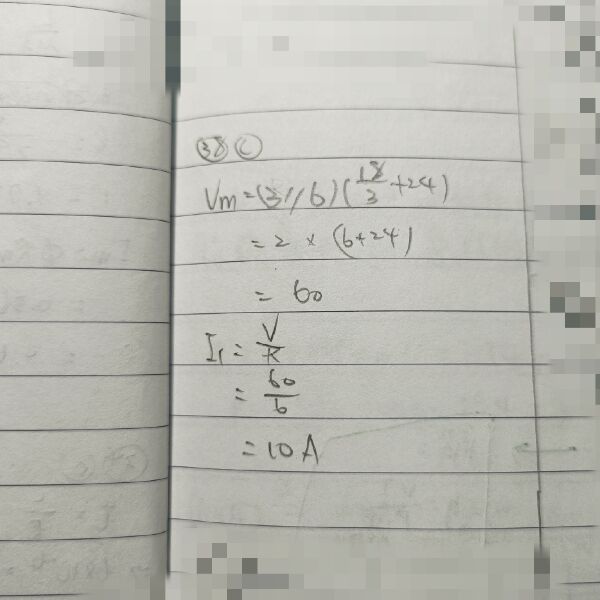 ㊳ Ⓒ
Vm=(3//6)(18/3+24)
=2×(6+24)
=60
I₁=V/R
=60/6
=10A